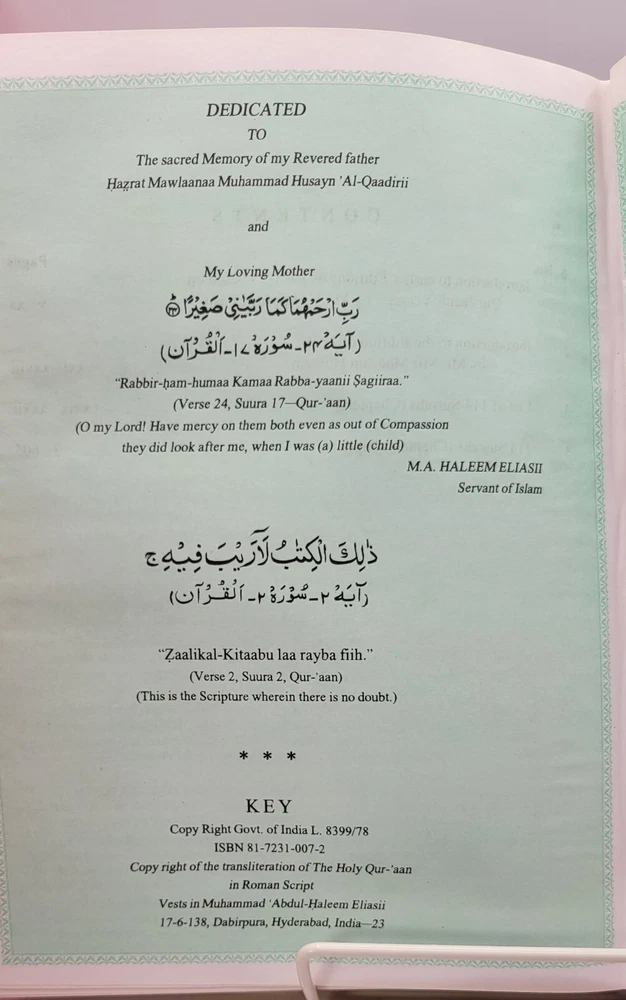 DEDICATED
TO
The sacred Memory of my Revered father
Ḥaẓrat Mawlaanaa Muhammad Husayn 'Al-Qaadirii
and
My Loving Mother
رَبِّ ارْحَمْهُمَا كَمَا رَبَّيٰنِيْ صَغِيْرًا ﴿۲۴﴾ؕ
(آیَهْ ۲۴ـ سُوْرَهْ ۱۷ـ اَلْقُرْآن)
"Rabbir-ḥam-humaa Kamaa Rabba-yaanii Ṣagiiraa."
(Verse 24, Suura 17—Qur-'aan)
(O my Lord! Have mercy on them both even as out of Compassion
they did look after me, when I was (a) little (child)
M.A. HALEEM ELIASII
Servant of Islam
ذٰلِكَ الْكِتٰبُ لَآرَيْبَ فِيْهِ ج
(آیَهْ ۲ـ سُوْرَهْ ۲ـ اَلْقُرْآن)
"Ẓaalikal-Kitaabu laa rayba fiih."
(Verse 2, Suura 2, Qur-'aan)
(This is the Scripture wherein there is no doubt.)
* * *
KEY
Copy Right Govt. of India L. 8399/78
ISBN 81-7231-007-2
Copy right of the transliteration of The Holy Qur-'aan
in Roman Script
Vests in Muhammad 'Abdul-Ḥaleem Eliasii
17-6-138, Dabirpura, Hyderabad, India—23